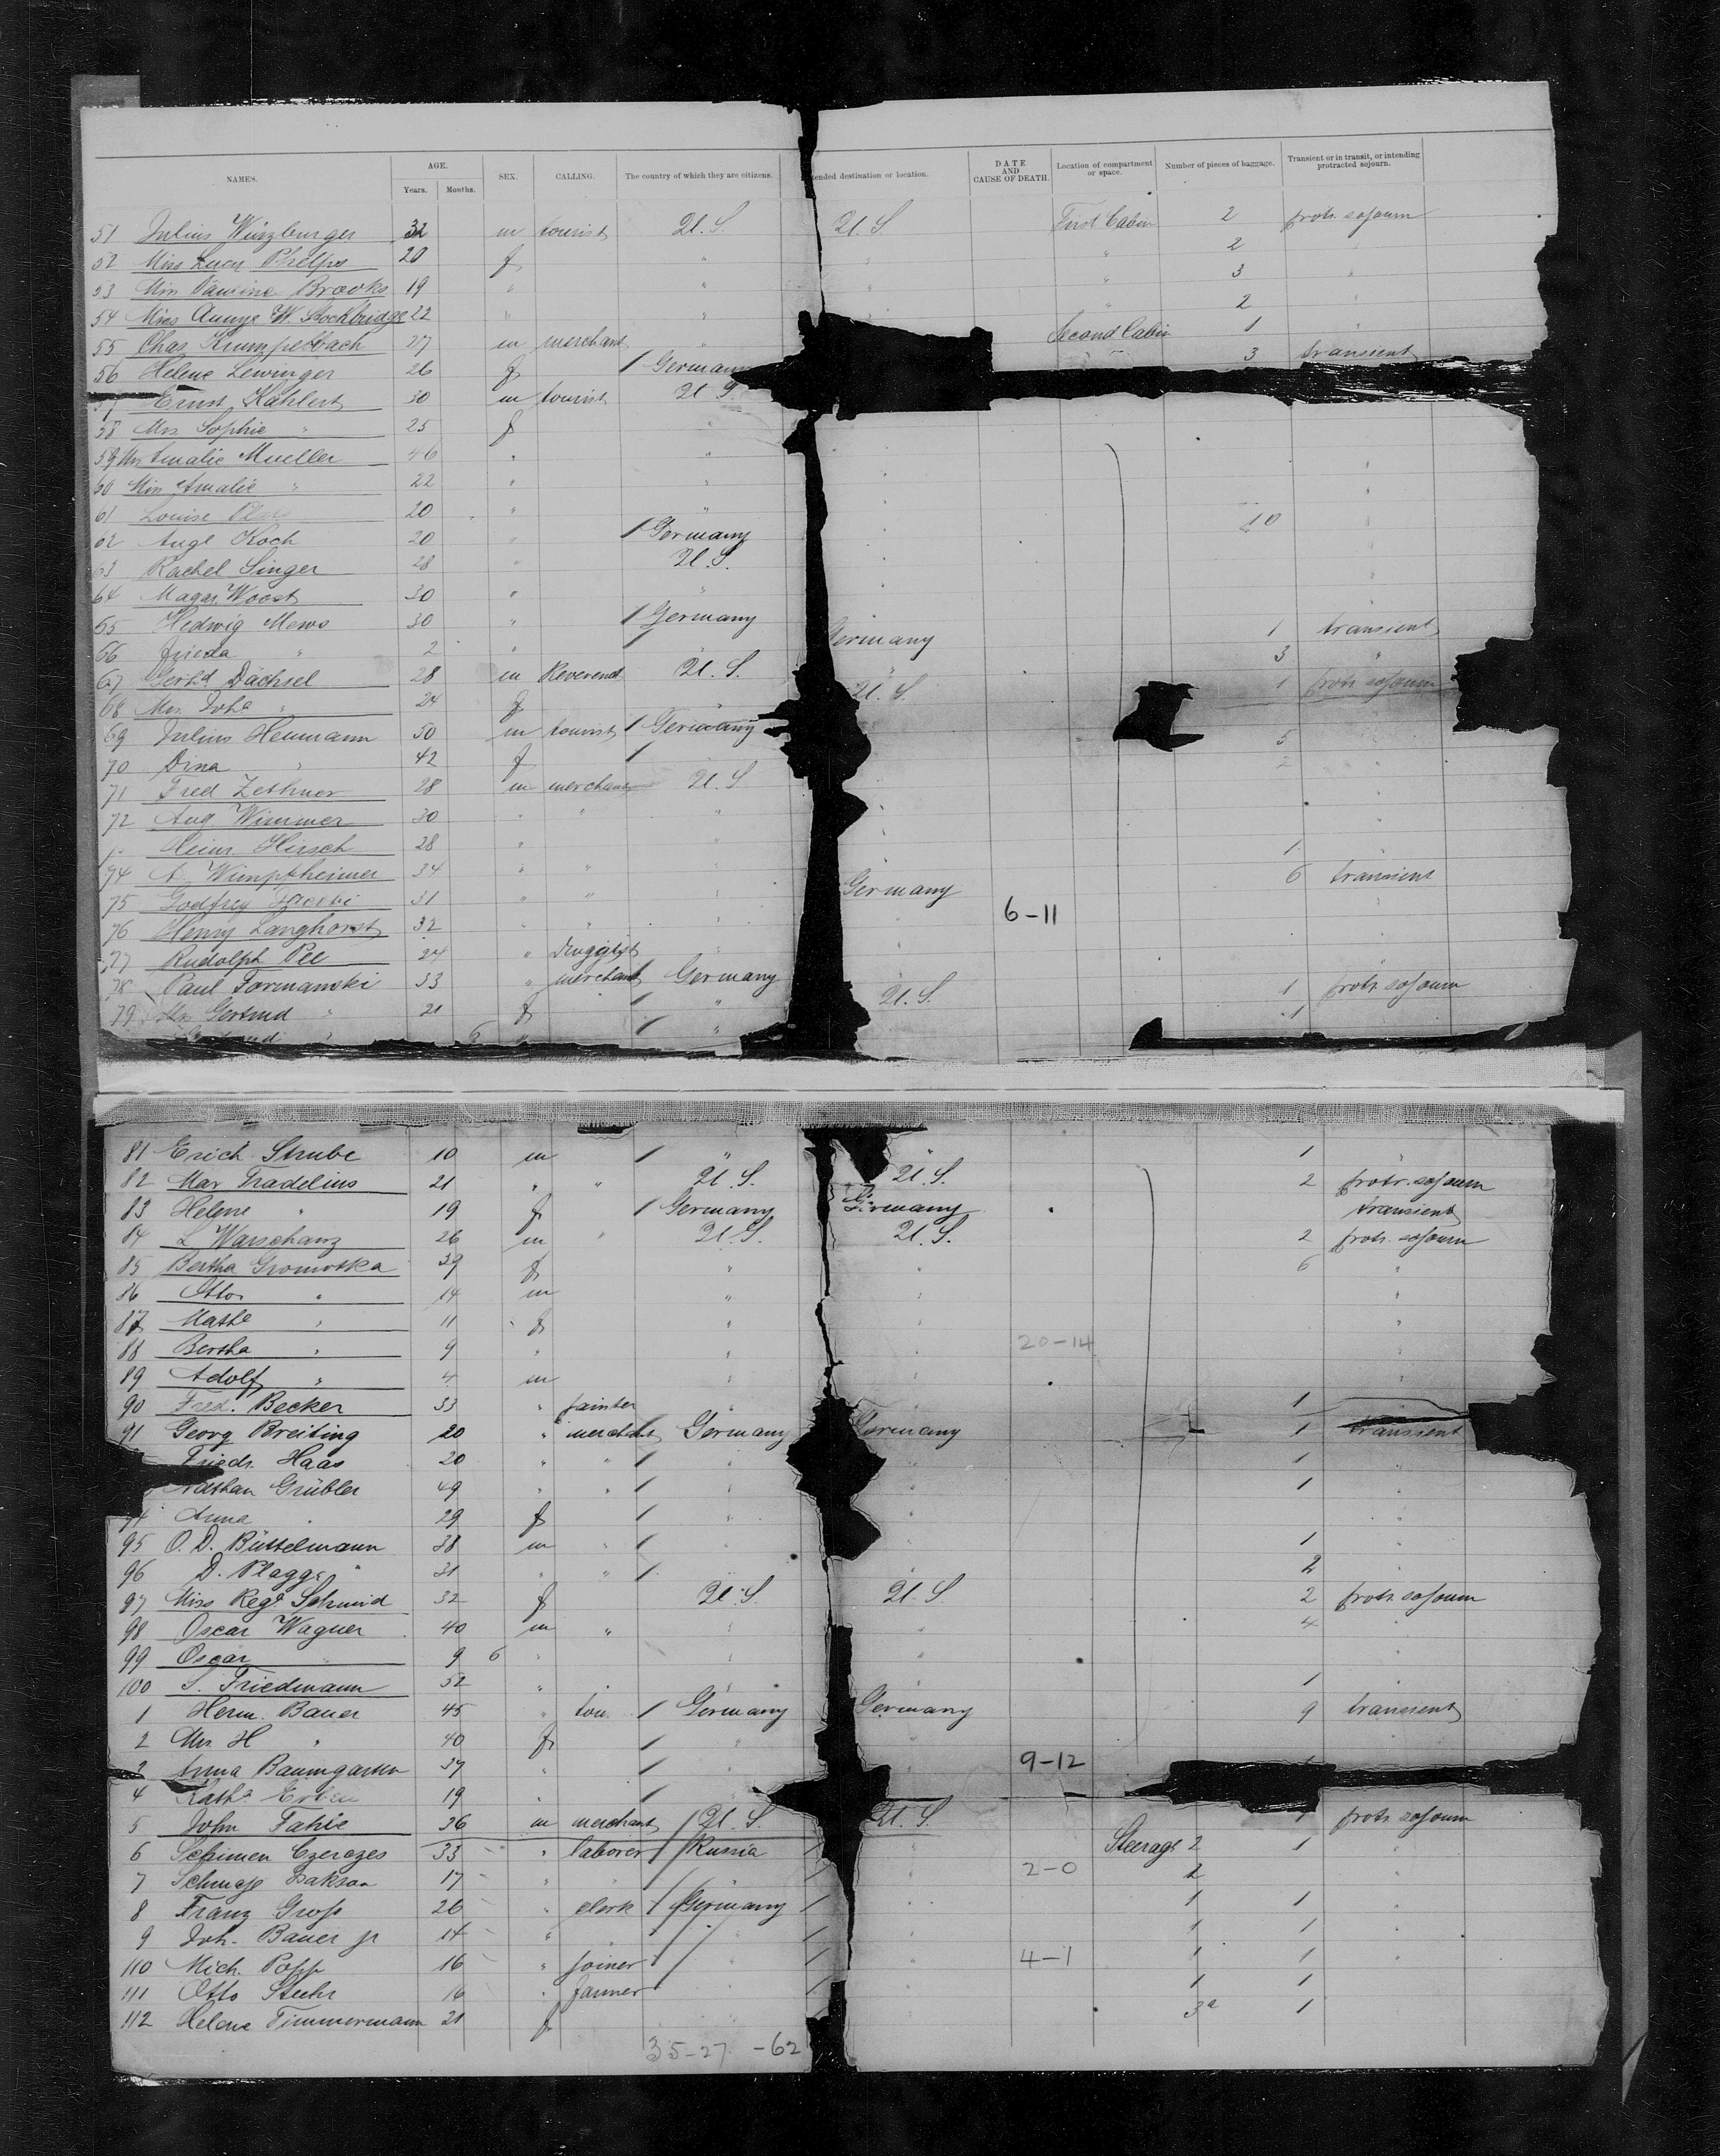 NAMES. AGE. SEX. CALLING. The country of which they are citizens. ended destination or location. DATE AND CAUSE OF DEATH. Location of compartment or space. Number of pieces of baggage. Transient or in transit, or intending protracted sojourn.
Years. Months.
51 Julius Würzburger 32 m tourist U.S. U.S First Cabin 2 protr. sojourn
52 Miss Lucy Phelps 20 f " " " 2 "
53 Miss Pauline Brooks 19 " " " " 3 "
54 Miss Annye W. Stockbridge 22 " " " 2 "
55 Chas Krumpelbach 27 m merchant " Second Cabin 1 "
56 Helene Lewinger 26 f / German 3 transient
57 Ernst Kahlert 30 m tourist U.S.
58 Mrs Sophie " 25 f "
59 Mrs Amalie Mueller 46 " " "
60 Miss Amalie " 22 " " "
61 Louise 20 " " 10
62 Aug. Koch 20 " / Germany
63 Rachel Singer 28 " U.S. "
64 Magar. Woost 30 " "
65 Hedwig Mews 30 " / Germany 1 transient
66 Frieda " 2 " / Germany 3 "
67 Gerhd Dächsel 28 m Reverend U.S. " 1 protr sojourn
68 Mrs Joha " 24 f " U.S.
69 Julius Heumann 50 m tourist / Germany 5
70 Dina " 42 f / 2 "
71 Fred Zethner 28 m merchant U.S "
72 Aug. Wimmer 30 " " " "
Heinr. Hirsch 28 " " 1 "
74 A. Wimpfheimer 34 " " 6 transient
75 Godfrey 31 " " Germany "
76 Henry Langhorst 32 " " 6-11
77 Rudolph Pee 24 " druggist "
78 Paul Formanski 33 " merchant / Germany 1 protr. sojourn
79 Mrs Gertrud " 21 f / " U.S. 1
6 " / "
81 Erich Strube 10 m / " " 1
82 Max Tradelius 21 " " U.S. U.S. 2 protr. sojourn
83 Helene " 19 f / Germany Germany transient
84 L Warschanz 26 m " U.S. U.S. 2 protr. sojourn
85 Bertha Gromotka 39 f " " 6 "
86 Otto " 14 m " "
87 Mathe " 11 f " " "
88 Bertha " 9 " " " 20-14 "
89 Adolf " 4 m " " "
90 Fred. Becker 33 " painter 1
91 Georg Breiting 20 " merchant / Germany Germany 1 transient
Friedr. Haas 20 " " / " " 1 "
Nathan Grübler 49 " " / " " 1
94 Anna " 29 f / " " "
95 O. D. Büttelmann 38 m " / " 1
96 D. Plagge 31 " " / " 2 "
97 Miss Rega Schmid 32 f U.S. U.S 2 protr. sojourn
98 Oscar Wagner 40 m " " " 4 "
99 Oscar " 9 6 " " "
100 S. Friedmann 52 " 1
1 Herm. Bauer 45 " tou. / Germany Germany 9 transient
2 Mrs H " 40 f / " "
3 Anna Baumgarten 37 " / " " 9-12
4 Katha 19 " /
5 John Fahle 36 m merchant / U.S. U.S. 1 protr sojourn
6 Schimen Czerazes 33 " laborer / Russia / " Steerage 2 1 "
7 17 " " / " / " 2-0 2 "
8 Franz Groß 26 " clerk / Germany / " 1 1 "
9 Joh. Bauer jr 14 " " / " / " 1 1 "
110 Mich. Popp 16 " joiner / " / " 4-1 1 1 "
111 Otto Stuhr 16 " farmer / " 1 1
112 Helene Timmermann 21 f 3a 1
35-27 -62